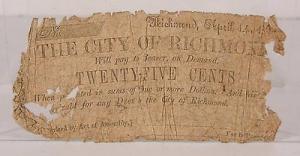 No.
Richmond, April 14, 18
THE CITY OF RICHMON
Will pay to bearer, on Demand,
TWENTY-FIVE CENTS
When presented in sums of One or more Dollars.
for any Dues to the City of Richmond.
Act of Assembly.